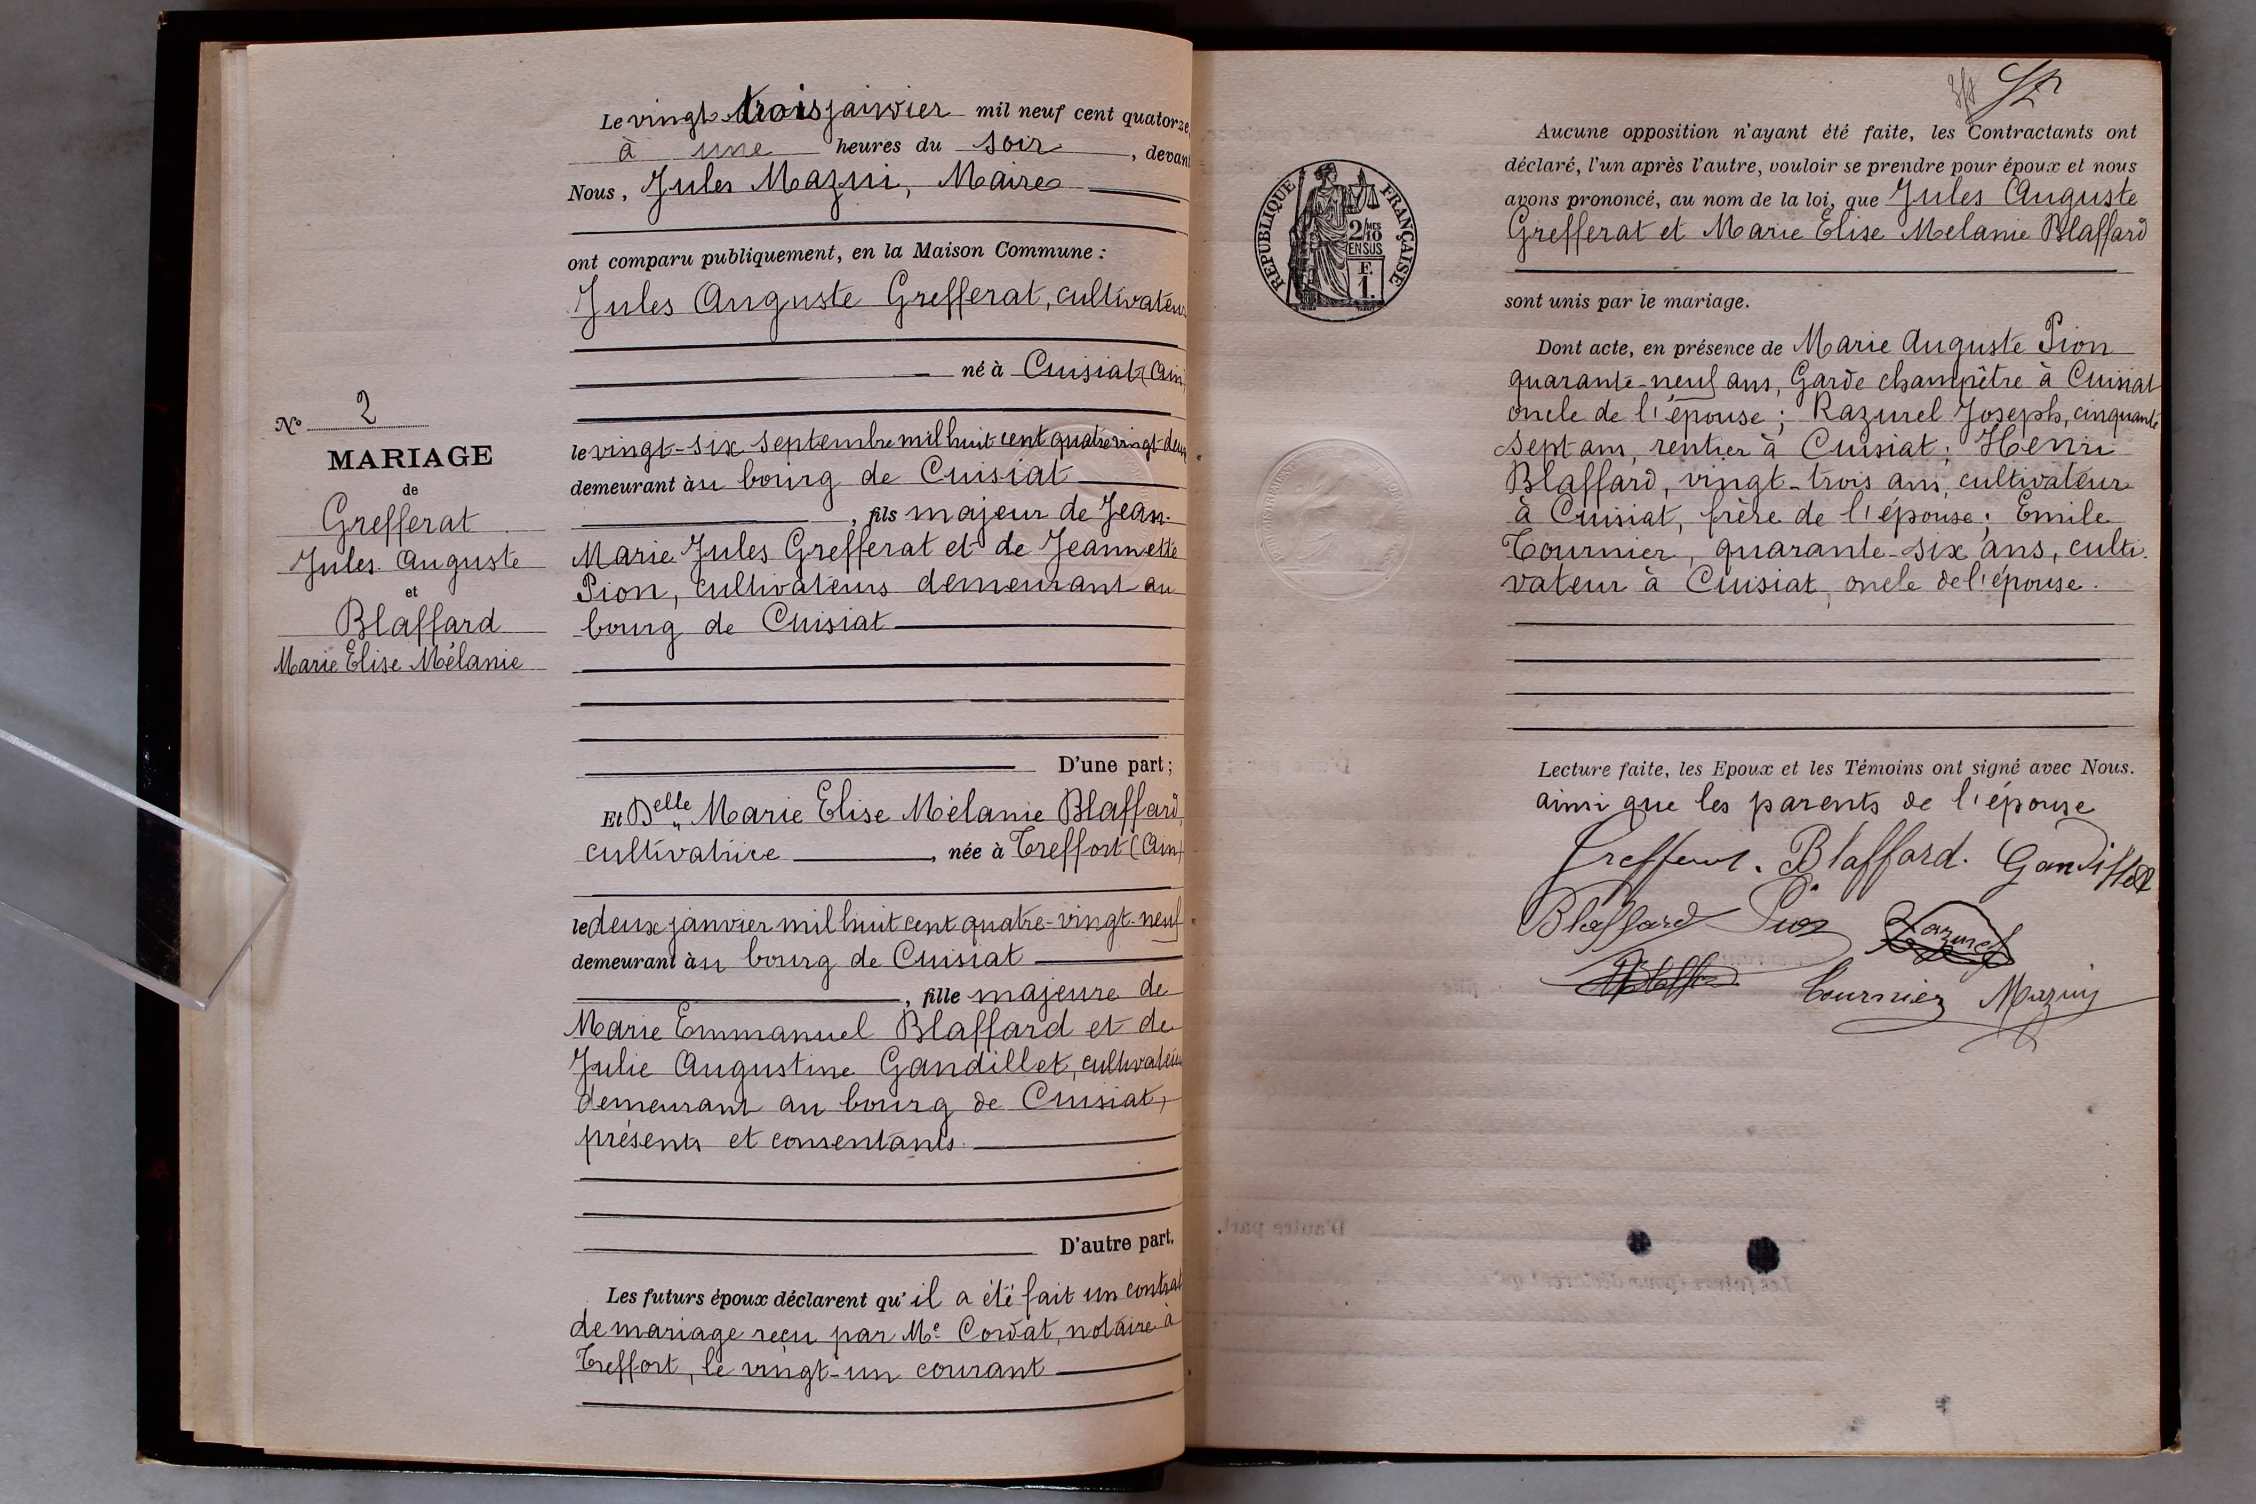 Le vingt-trois janvier mil neuf cent quatorze,
à une heures du soir, devant
Nous, Jules Mazui, Maire
ont comparu publiquement, en la Maison Commune :
Jules Auguste Grefferat, cultivateur
né à Cuisiat (Ain)
le vingt-six septembre mil huit cent quatre vingt-deux
demeurant au bourg de Cuisiat
, fils majeur de Jean-
Marie Jules Grefferat et de Jeannette
Pion, cultivateurs demeurant au
bourg de Cuisiat
D'une part ;
Et Delle Marie Elise Mélanie Blaffard,
cultivatrice, née à Treffort (Ain)
le deux janvier mil huit cent quatre-vingt-neuf
demeurant au bourg de Cuisiat
, fille majeure de
Marie Emmanuel Blaffard et de
Julie Augustine Gandillet, cultivateurs
demeurant au bourg de Cuisiat,
présents et consentants.
D'autre part.
Les futurs époux déclarent qu'il a été fait un contrat
de mariage reçu par Me Cordat, notaire à
Treffort, le vingt-un courant
No 2
MARIAGE
de
Grefferat
Jules Auguste
et
Blaffard
Marie Elise Mélanie
RÉPUBLIQUE FRANÇAISE
2/10 MES
EN SUS
F.
1.
Aucune opposition n'ayant été faite, les Contractants ont
déclaré, l'un après l'autre, vouloir se prendre pour époux et nous
avons prononcé, au nom de la loi, que Jules Auguste
Grefferat et Marie Elise Melanie Blaffard
sont unis par le mariage.
Dont acte, en présence de Marie Auguste Pion
quarante-neuf ans, Garde champêtre à Cuisiat
oncle de l'épouse ; Razurel Joseph, cinquante
sept ans, rentier à Cuisiat ; Henri
Blaffard, vingt-trois ans, cultivateur
à Cuisiat, frère de l'épouse ; Emile
Tournier, quarante-six ans, culti-
vateur à Cuisiat, oncle de l'épouse.
Lecture faite, les Epoux et les Témoins ont signé avec Nous.
ainsi que les parents de l'épouse
Grefferat. Blaffard. Gandillet
Blaffard Pion Razurel
Blaffard Tournier Mazuy